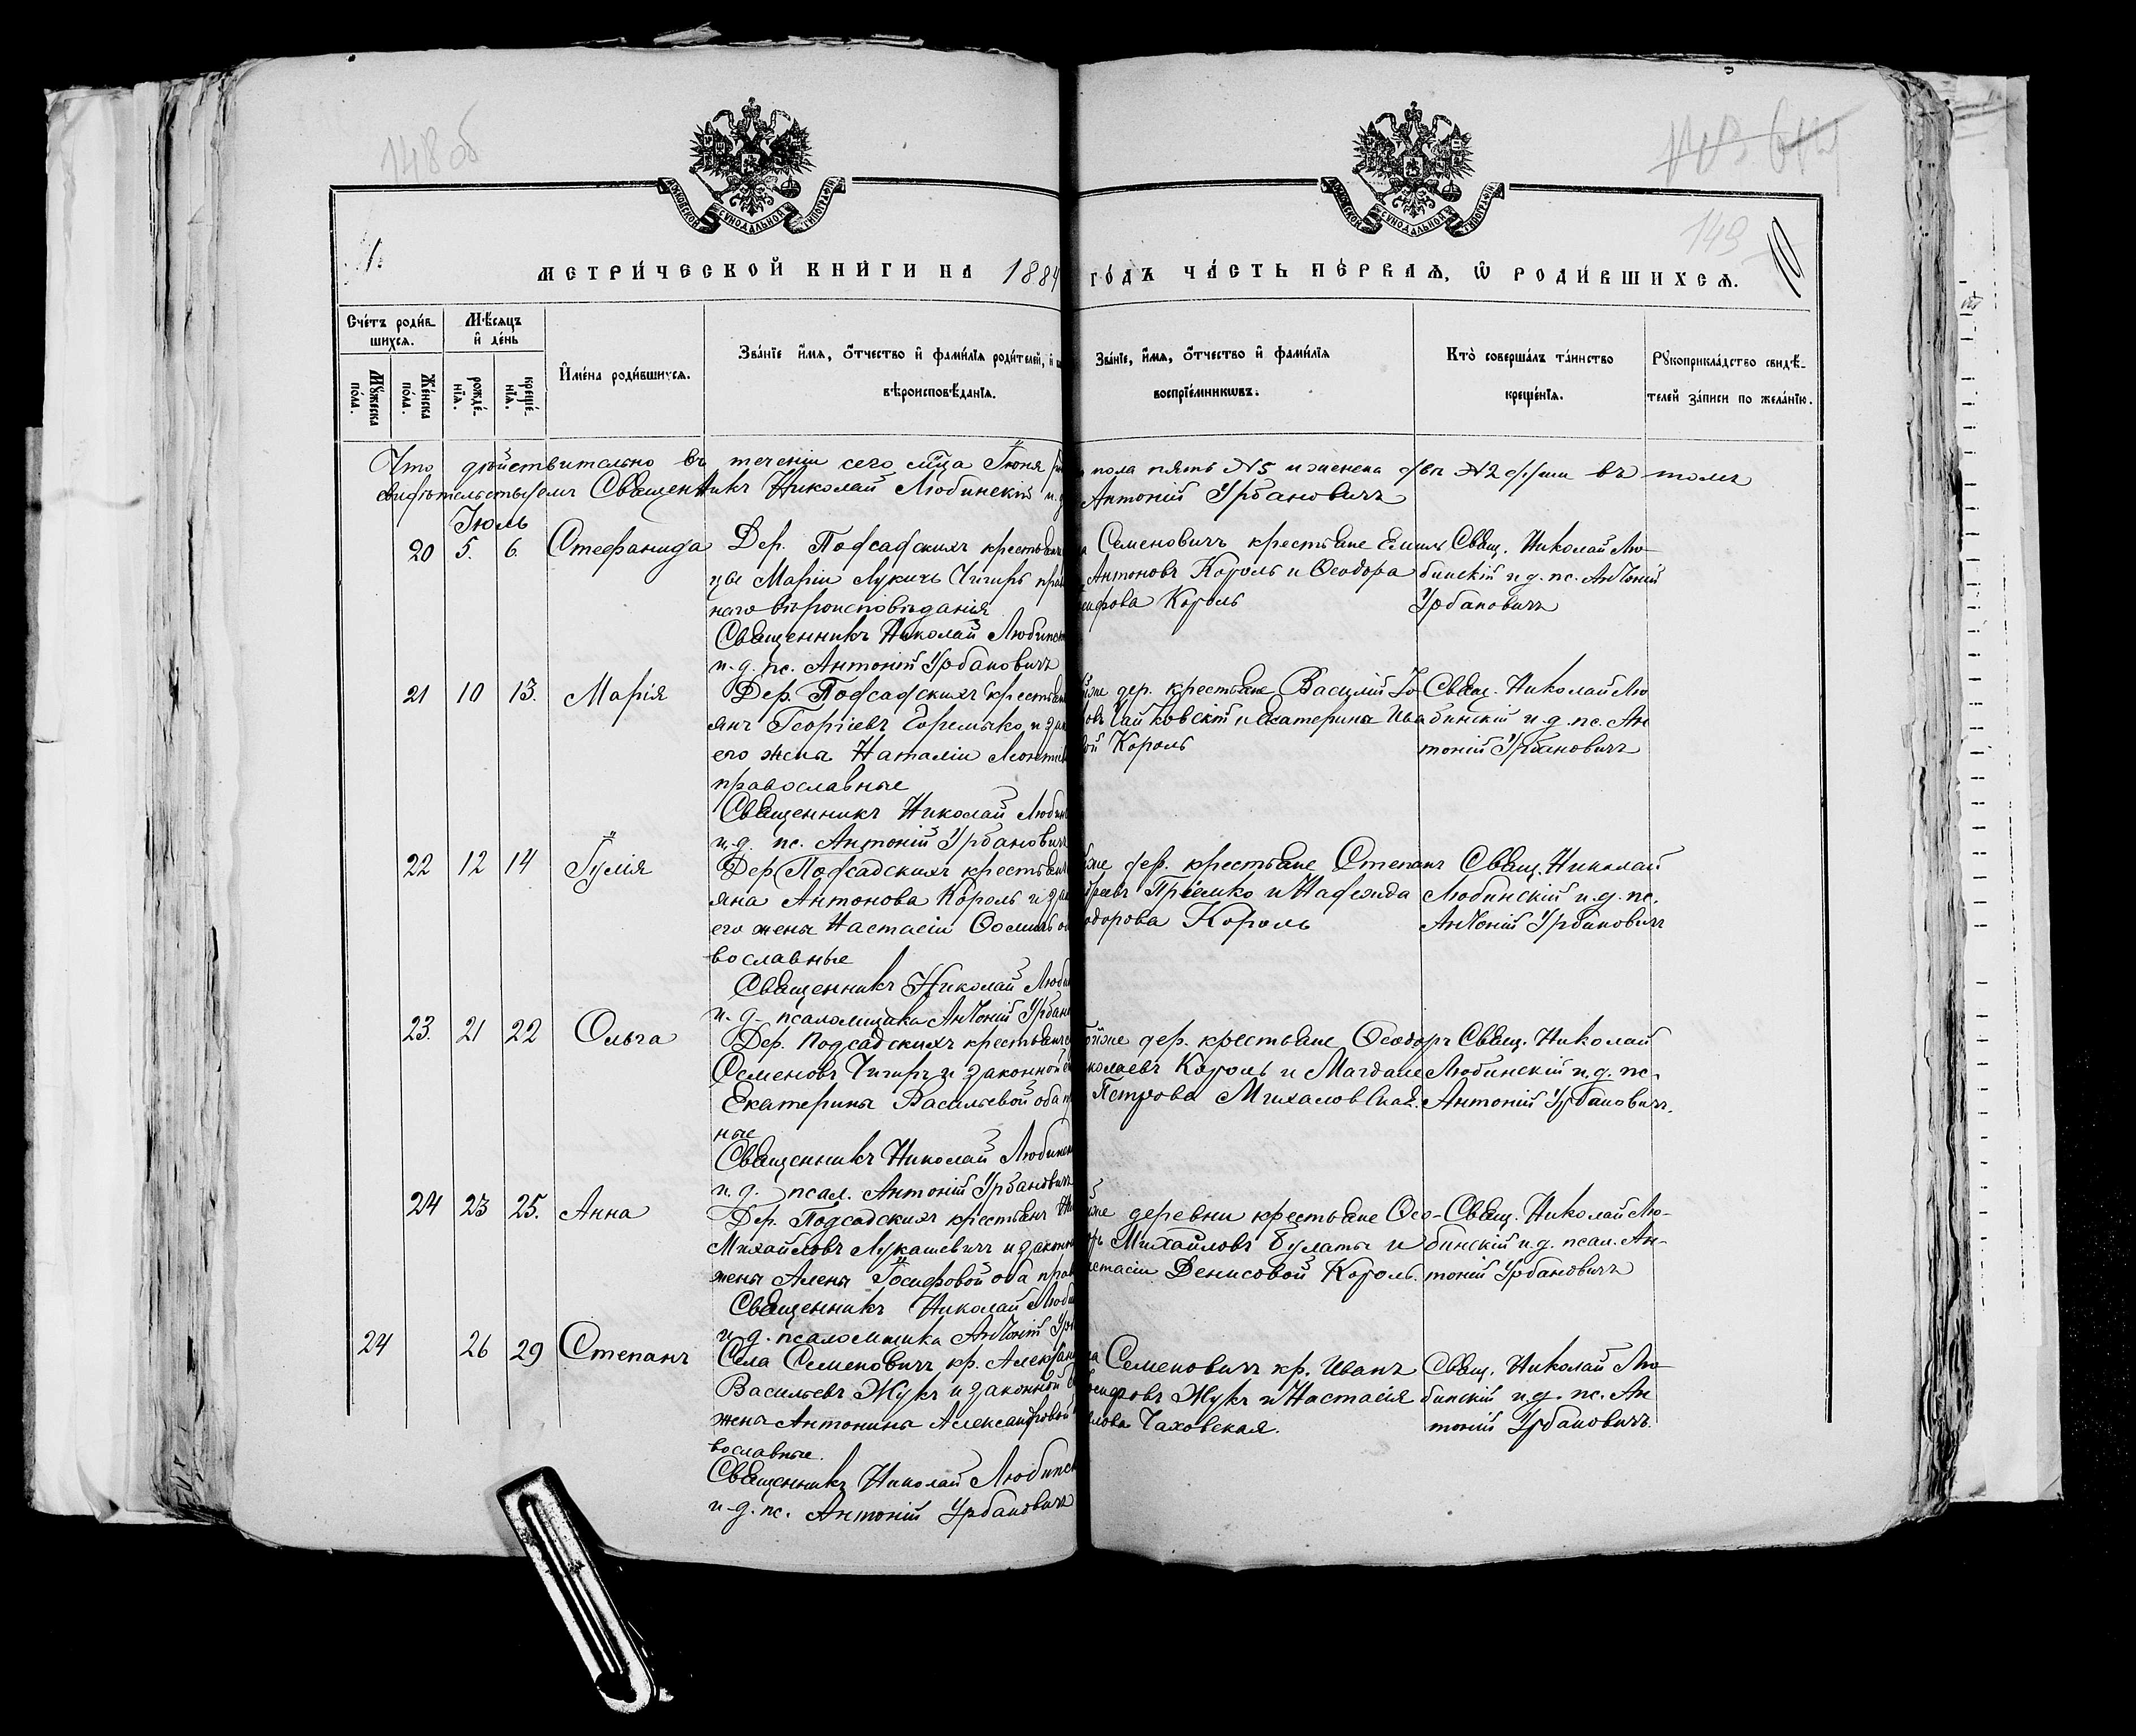 148 об
149
10
МОСКОВСКОЙ СѴНОДАЛЬНОЙ ТИПОГРАФІИ
МОСКОВСКОЙ СѴНОДАЛЬНОЙ ТИПОГРАФІИ
1.
МЕТРИ́ЧЕСКОЙ КНИ́ГИ НА 1884 ГО́ДЪ ЧА́СТЬ ПЕ́РВАѦ, Ѡ РОДИ́ВШИХСѦ.
Сче́тъ роди́в-
шихсѧ.
Мѣ́сяцъ
и҆ де́нь
Мꙋ́жеска
по́ла.
Же́нска
по́ла.
рожде́-
нїѧ.
креще́-
нїѧ.
И҆мена̀ роди́вшихсѧ.
Зва́нїе и҆́мѧ, ѻ҆́тчество и҆ фами́лїѧ роди́телей, и҆
вѣроисповѣ́данїѧ.
Зва́нїе, и҆́мѧ, ѻ҆́тчество и҆ фами́лїѧ
воспрїе́мникѡвъ.
Кто̀ соверша́лъ та́инство
креще́нїѧ.
Рꙋкоприкла́дство свидѣ́-
телей за́писи по жела́нїю.
Что дѣйствительно въ теченіи сего мѣсяца Іюня пола пять №5 и женска два №2 души въ томъ
свидѣтельствуемъ Священникъ Николай Любинскій и. д. Антоній Урбановичъ
Іюль
20 5. 6. Стефанида
Дер. Подсадскихъ крестьян
цы Маріи Лукичъ Чигиръ прав
наго вѣроисповѣданія
Священникъ Николай Любинск
и. д. пс. Антоній Урбановичъ
Семеновичъ крестьяне Емиль
Антоновъ Король и Ѳеодора
сифова Король
Свящ. Николай Лю-
бинскій и д. пс. Антоній
Урбановичъ
21 10 13. Марія
Дер. Подсадскихъ крестьян
янъ Георгіевъ Горемыко и зак
его жена Наталіи Леонтіев
православные
Священникъ Николай Любин
и. д. пс. Антоній Урбановичъ
же дер. крестьяне Василій Іо
овъ Чайковскій и Екатерина Ива
вой Король
Свящ. Николай Лю
бинскій и д. пс. Ан
тоній Урбановичъ
22 12 14 Іулія
Дер. Подсадскихъ крестьян
яна Антонова Король и зак
его жены Настасіи Ѳоминъ об
вославные
Священникъ Николай Любин
и. д. псаломщика Антоній Урбан
же дер. крестьяне Степанъ
дреевъ Пріемко и Надежда
одорова Король
Свящ. Николай
Любинскій и. д. пс.
Антоній Урбановичъ
23. 21 22 Ольга
Дер. Подсадскихъ крестьян
Семеновъ Чигиръ и законной е
Екатерины Васильевой оба п
ные
Священникъ Николай Любинск
и. д. псал. Антоній Урбановичъ
же дер. крестьяне Ѳеодоръ
колаевъ Король и Магдале
Петрова Михаловская.
Свящ. Николай
Любинскій и. д. пс.
Антоній Урбановичъ.
24 23 25. Анна
Дер. Подсадскихъ крестьянъ
Михайловъ Лукашевичъ и законн
жены Алены Іосифовой оба прав
Священникъ Николай Любин
и д. псаломщика Антоній Урб
же деревни крестьяне Ѳео-
оръ Михайловъ Булаты и
стасіи Денисовой Король.
Свящ. Николай Лю-
бинскій и д. псал. Ан-
тоній Урбановичъ
24 26 29 Степанъ
Села Семеновичъ кр. Александ
Васильевъ Жукъ и законной е
жена Антонина Александровой
вославные.
Священникъ Николай Любинск
и. д. пс. Антоній Урбановичъ
Семеновичъ кр. Иванъ
сифовъ Жукъ и Настасія
лова Чаховская.
Свящ. Николай Лю
бинскій и д. пс. Ан
тоній Урбановичъ.